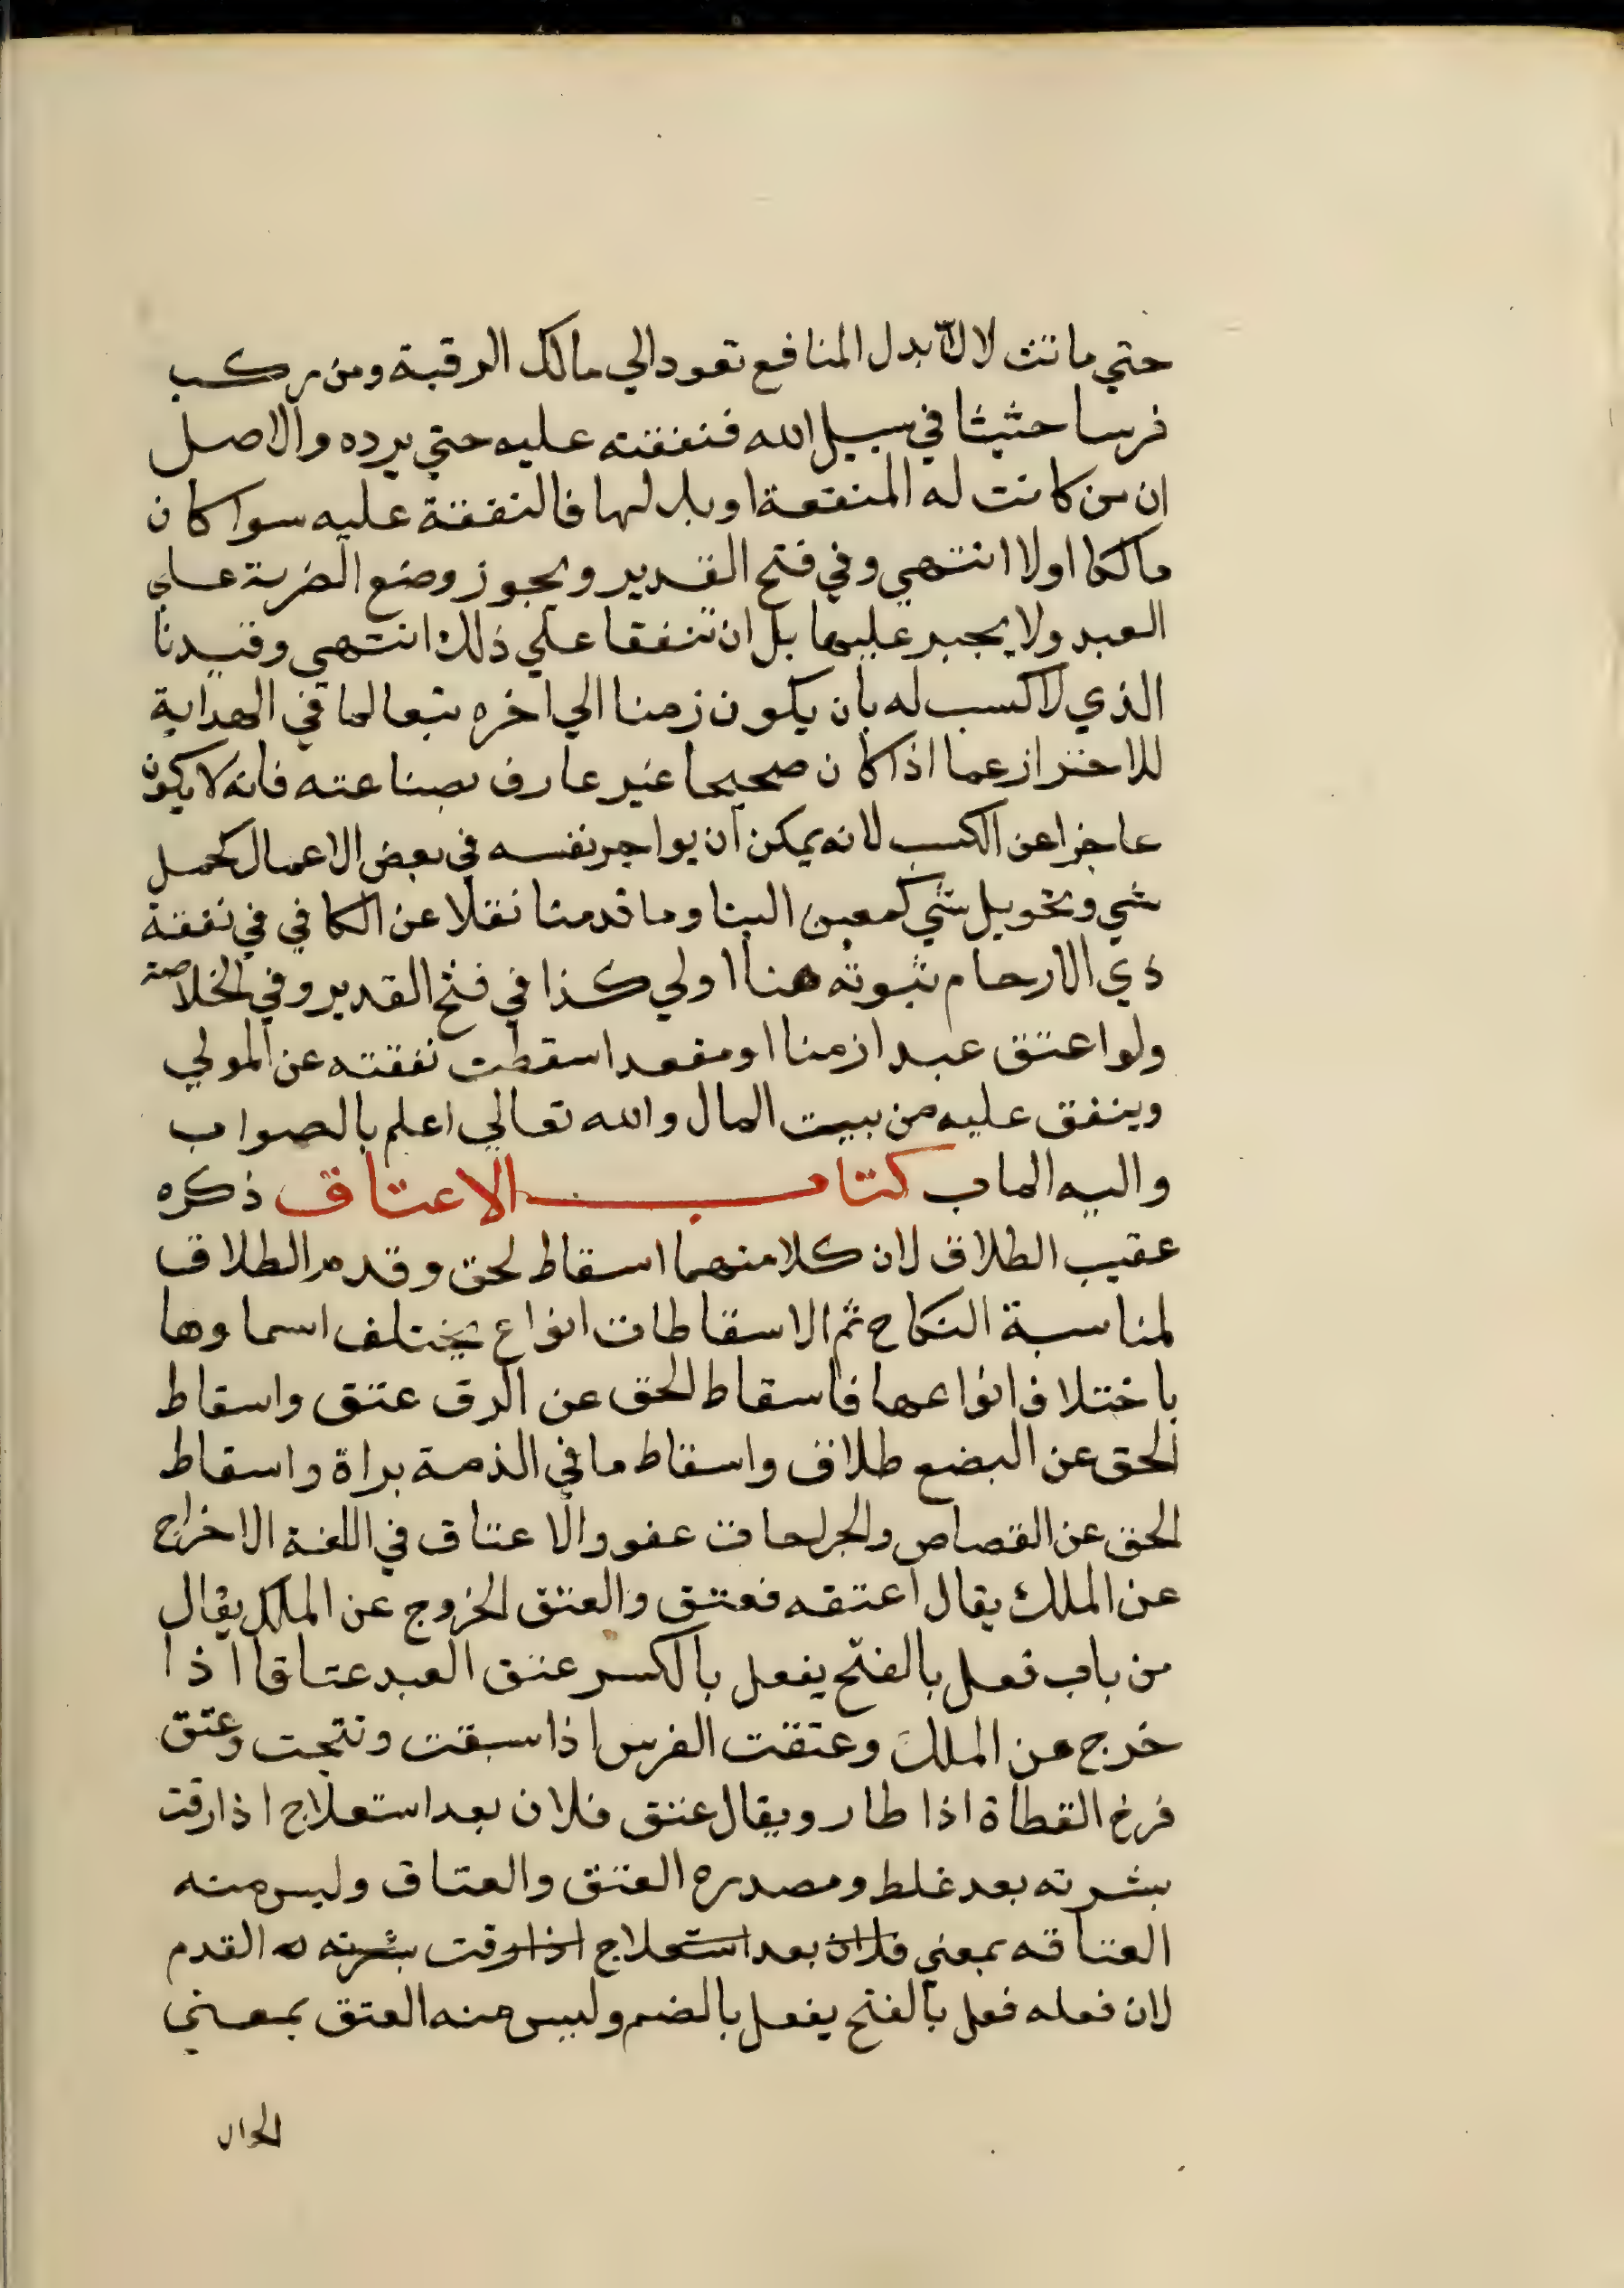 حتي ماتت لان بدل المنافع تعود الي مالك الرقبة ومن ركب
فرسا حثيثا في سبيل الله فنفقته عليه حتي يرده والاصل
ان من كانت له المنفعة او بدلها فالنفقة عليه سوا كان
مالكا اولا انتهي وفي فتح القدير ويجوز وضع الضربة علي
العبد ولا يجبر عليها بل ان تنفقا علي ذلك انتهي وقيدنا
الذي لا كسب له بان يكون زمنا الي اخره تبعا لما في الهداية
للاحتراز عما اذا كان صحيحا غير عارف بصناعته فانه لا يكون
عاجزا عن الكسب لانه يمكن ان يواجر نفسه في بعض الاعمال كحمل
شي وتحويل شي كمعين البنا وما قدمنا نقلا عن الكافي في نفقة
ذي الارحام ثبوته هنا اولي كذا في فتح القدير وفي الخلاصة
ولو اعتق عبدا زمنا او مقعدا سقطت نفقته عن المولي
وينفق عليه من بيت المال والله تعالي اعلم بالصواب
واليه الماب كتاب الاعتاق ذكره
عقيب الطلاق لان كلا منهما اسقاط لحق وقدم الطلاق
لمناسبة النكاح ثم الاسقاطات انواع يختلف اسماوها
باختلاف انواعها فاسقاط الحق عن الرق عتق واسقاط
الحق عن البضع طلاق واسقاط ما في الذمة براة واسقاط
الحق عن القصاص والجراحات عفو والاعتاق في اللغة الاخراج
عن الملك يقال اعتقه فعتق والعتق الخروج عن الملك يقال
من باب فعل بالفتح يفعل بالكسر عتق العبد عتاقا اذا
خرج عن الملك وعتقت الفرس اذا سبقت ونتجت وعتق
فرخ القطاة اذا طار ويقال عتق فلان بعد استعلاج اذا رقت
بشرته بعد غلظ ومصدره العتق والعتاق وليس منه
العتاقه بمعني فلان بعد استعلاج اذا رقت بشرته القدم
لان فعله فعل بالفتح يفعل بالضم وليس منه العتق بمعني